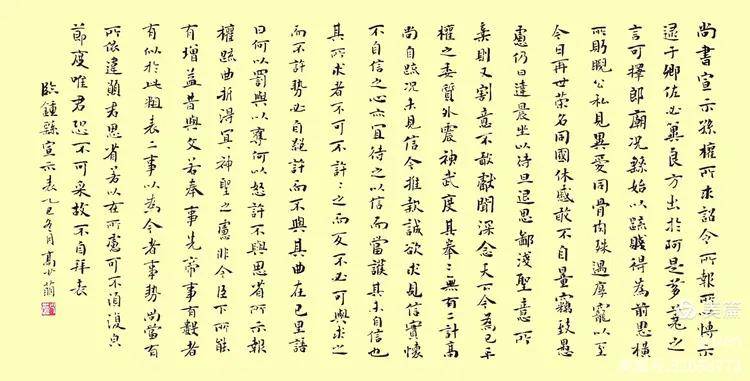 尚書宣示孫權所求詔令所報所以博示
逮于卿佐必冀良方出於阿是芻蕘之
言可擇郎廟況繇始以疏賤得為前恩橫
所盼睨公私見異愛同骨肉殊遇厚寵以至
今日再世榮名同國休慼敢不自量竊致愚
慮仍日達晨坐以待旦退思鄙淺聖意所
棄則又割意不敢獻聞深念天下今為已平
權之委質外震神武度其拳〻無有二計高
尚自疏況未見信今推款誠欲求見信實懷
不自信之心亦宜待之以信而當護其未自信也
其所求者不可不許〻之而反不必可與求之
而不許勢必自絕許而不與其曲在己里語
曰何以罰與以奪何以怒許不與思省所示報
權疏曲折得宜神聖之慮非今臣下所能
有增益昔與文若奉事先帝事有數者
有似於此粗表二事以為今者事勢尚當有
所依違願君思省若以在所慮可不須復貞
節度唯君恐不可采故不自拜表
臨鍾繇宣示表乙巳冬月高
美篇